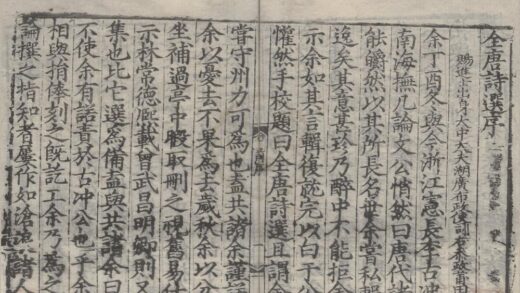 全唐詩選序
賜進士出身大中大夫湖廣布政使司右參政莆田
余丁酉冬與今浙江憲長李古冲
南海撫几論文公悄然曰唐代詩
能皭然以其所長名世余嘗私輯
逸矣其意甚珍乃醉中不能拒余
示余如其言輯復就完以白于公
懽然手校題曰全唐詩選且謂余
嘗守州力可為也盍共諸余謹
余以憂去不果為去歲秋余以
坐補過亭中股取刪之視舊易
示林常德熙載曾武昌明卿則又
集也比它選為備盍與共諸余曰
不使余有諾責於古冲公也乎余
相與捐俸刻之既訖工余乃為之
論撰之指知者屢作如滄浪諸人